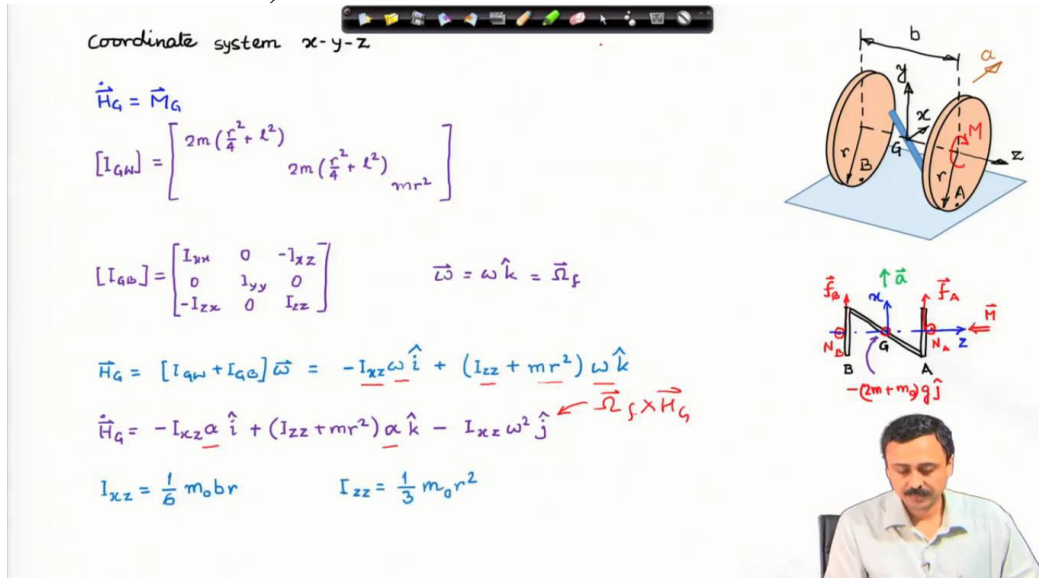 Coordinate system x-y-z
\dot{\vec{H}}_G = \vec{M}_G
[I_{GW}] = [2m(r^2/4 + l^2)
2m(r^2/4 + l^2)
mr^2]
[I_{GB}] = [I_{xx} 0 -I_{xz}
0 I_{yy} 0
-I_{zx} 0 I_{zz}]
\vec{ω} = ω\hat{k} = \vec{Ω}_f
\vec{H}_G = [I_{GW} + I_{GB}]\vec{ω} = -I_{xz}ω\hat{i} + (I_{zz} + mr^2)ω\hat{k}
\dot{\vec{H}}_G = -I_{xz}α\hat{i} + (I_{zz} + mr^2)α\hat{k} - I_{xz}ω^2\hat{j}
\vec{Ω}_f × \vec{H}_G
I_{xz} = 1/6 m_0br
I_{zz} = 1/3 m_0r^2
b
a
y
x
M
G
z
r
B
r
A
\vec{a}
\vec{f}_B
x
\vec{f}_A
\vec{M}
N_B
G
N_A
z
B
A
-(2m+m_0)g\hat{j}